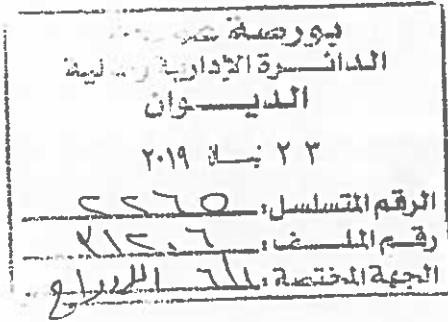 بورصة عمان
الدائرة الإدارية والمالية
الديوان
٢٣ نيسان ٢٠١٩
الرقم المتسلسل: ٢٢٦٥
رقم الملف:
الجهة المختصة: